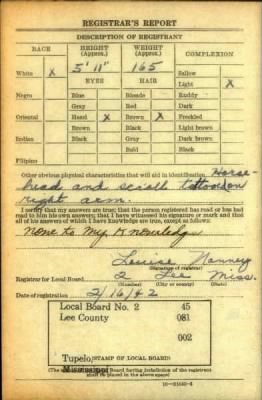 REGISTRAR'S REPORT
DESCRIPTION OF REGISTRANT
RACE HEIGHT (Approx.) WEIGHT (Approx.) COMPLEXION
White X 5' 11" 165 Sallow
EYES HAIR Light X
Negro Blue Blonde Ruddy
Gray Red Dark
Oriental Hazel X Brown X Freckled
Indian Brown Black Light brown
Black Gray Dark brown
Bald Black
Filipino
Other obvious physical characteristics that will aid in identification Horse-
head and scroll tattooed on
right arm.
I certify that my answers are true; that the person registered has read or has had
read to him his own answers; that I have witnessed his signature or mark and that
all of his answers of which I have knowledge are true, except as follows:
None to My Knowledge
Louise Nanney
(Signature of registrar)
Registrar for Local Board 2 Lee Miss.
(Number) (City or county) (State)
Date of registration 2/16/42
Local Board No. 2 45
Lee County 081
002
Tupelo, Mississippi
(STAMP OF LOCAL BOARD)
(The stamp of the Local Board having jurisdiction of the registrant
shall be placed in the above space.)